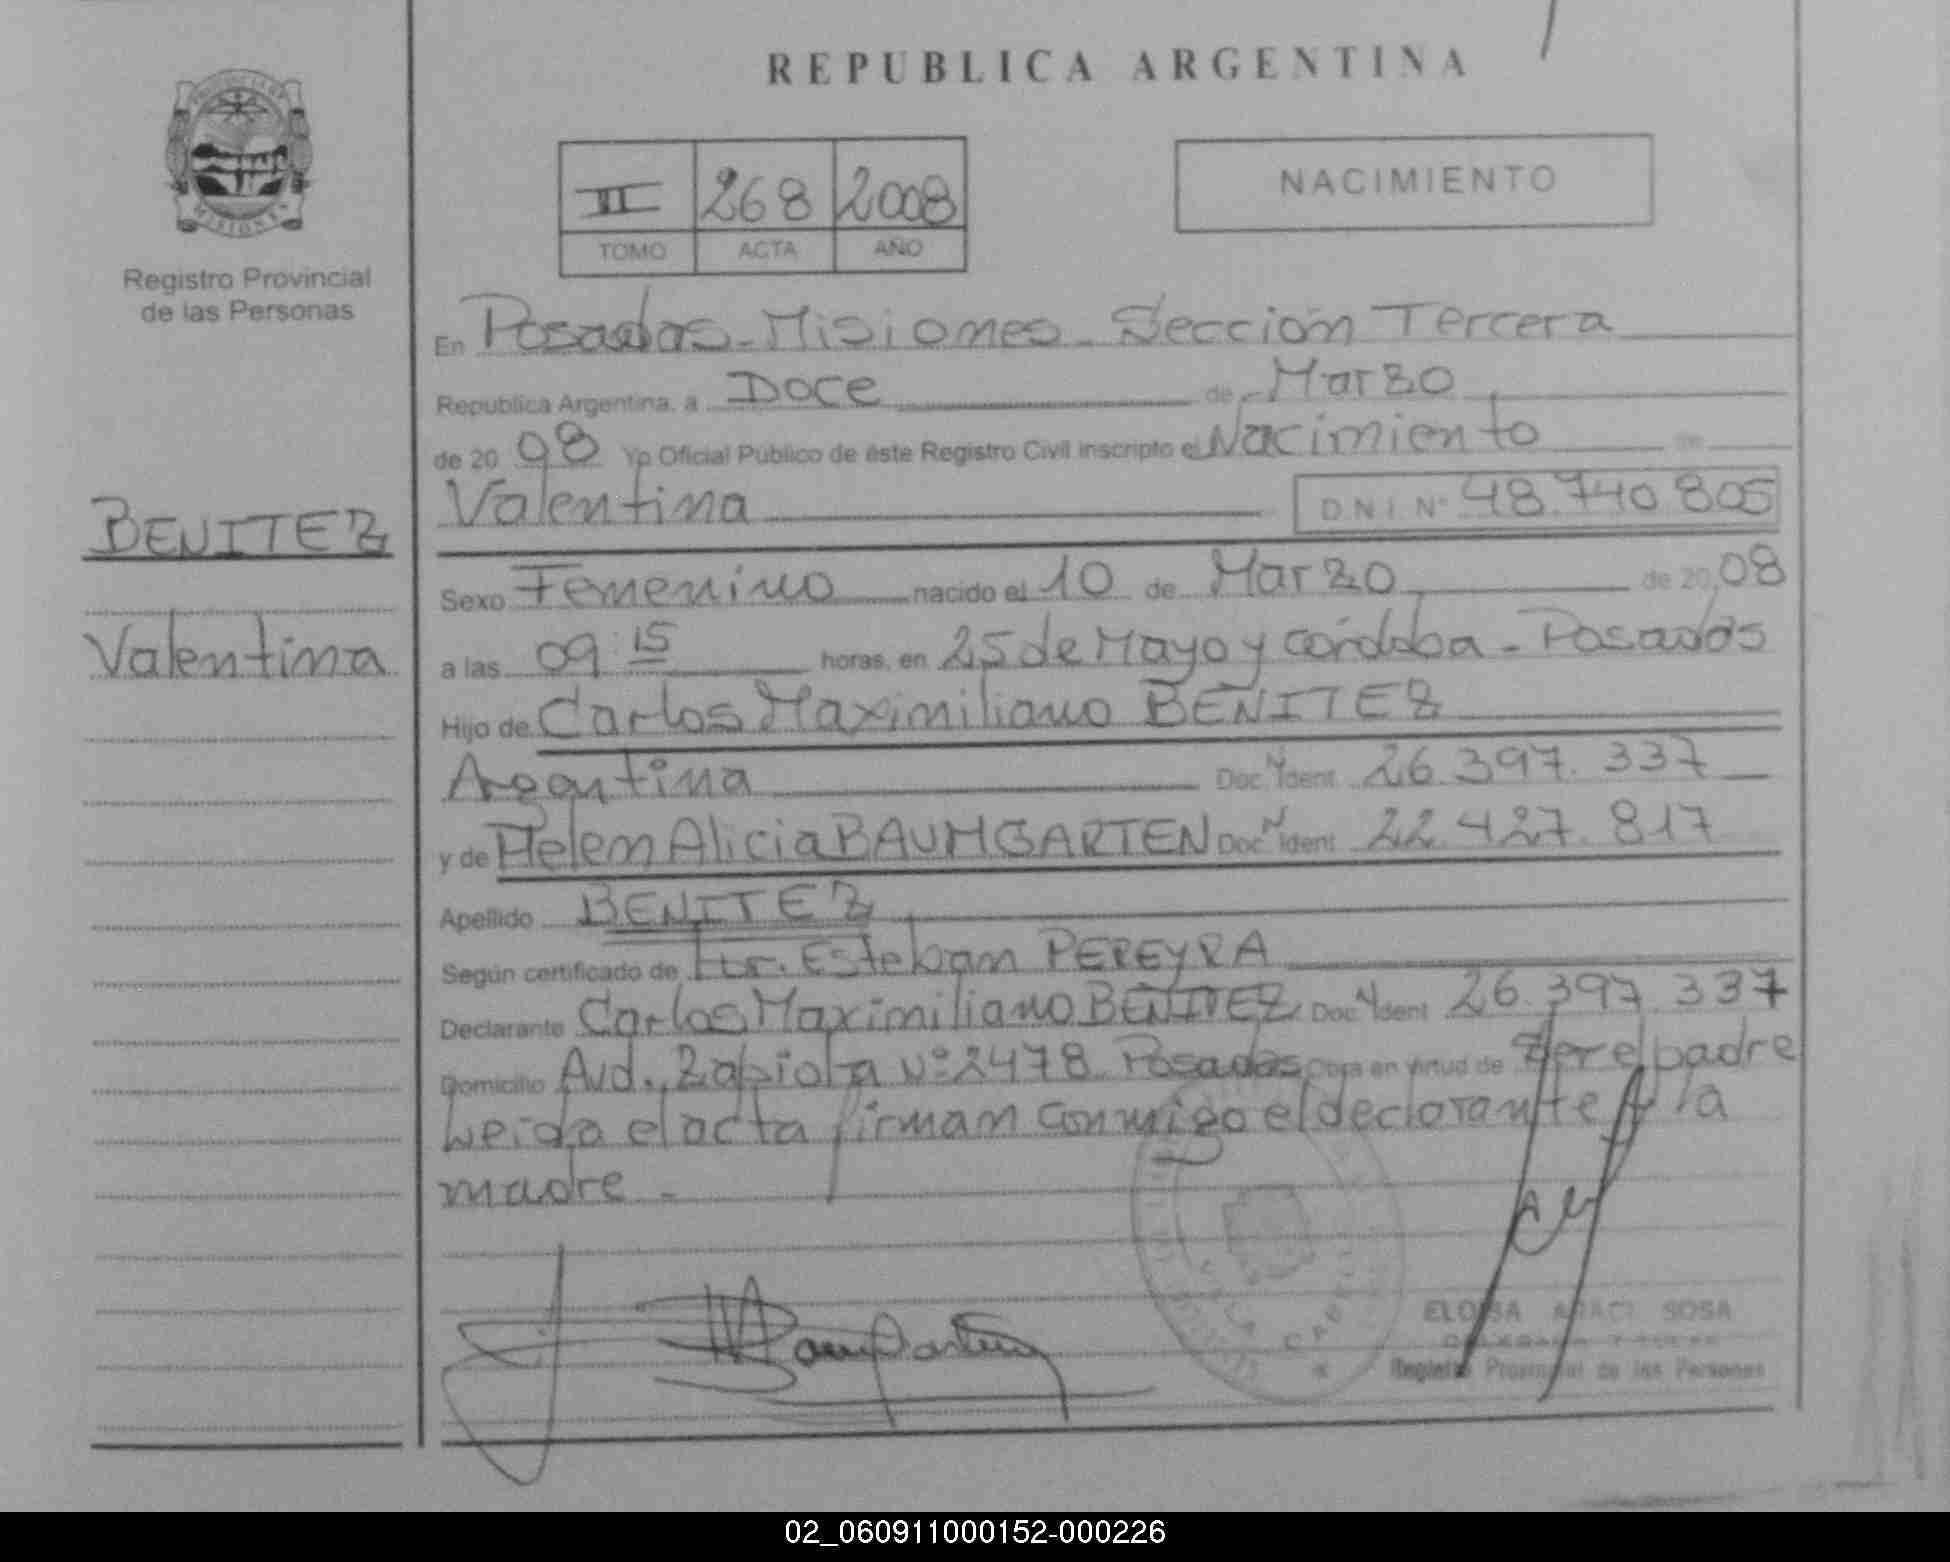 REPUBLICA ARGENTINA
PROVINCIA DE
MISIONES
Registro Provincial
de las Personas
III 268 2008
TOMO ACTA AÑO
NACIMIENTO
BENITEZ
Valentina
En Posadas - Misiones - Sección Tercera
Republica Argentina, a Doce de Marzo
de 20 08 Yo Oficial Público de éste Registro Civil inscripto el Nacimiento de
Valentina D.N.I. Nº 48.740.805
Sexo Femenino nacido el 10 de Marzo de 20 08
a las 09:15 horas, en 25 de Mayo y córdoba - Posadas
Hijo de Carlos Maximiliano BENITEZ
Argentina Doc. Ident. 26.397.337
y de Helen Alicia BAUMGARTEN Doc. Ident. 22.427.817
Apellido BENITEZ
Según certificado de Esteban PEREYRA
Declarante Carlos Maximiliano BENITEZ Doc. Ident. 26.397.337
Domicilio Avd. Zapiola Nº 2478 Posadas Obra en virtud de ser el padre
Leida el acta firman conmigo el declarante y la
madre -
ELOISA ARACI SOSA
Registro Provincial de las Personas
02_060911000152-000226